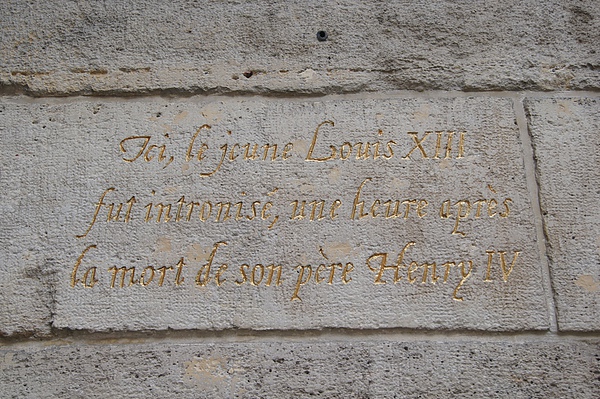 Ici, le jeune Louis XIII
fut intronisé, une heure après
la mort de son père Henry IV